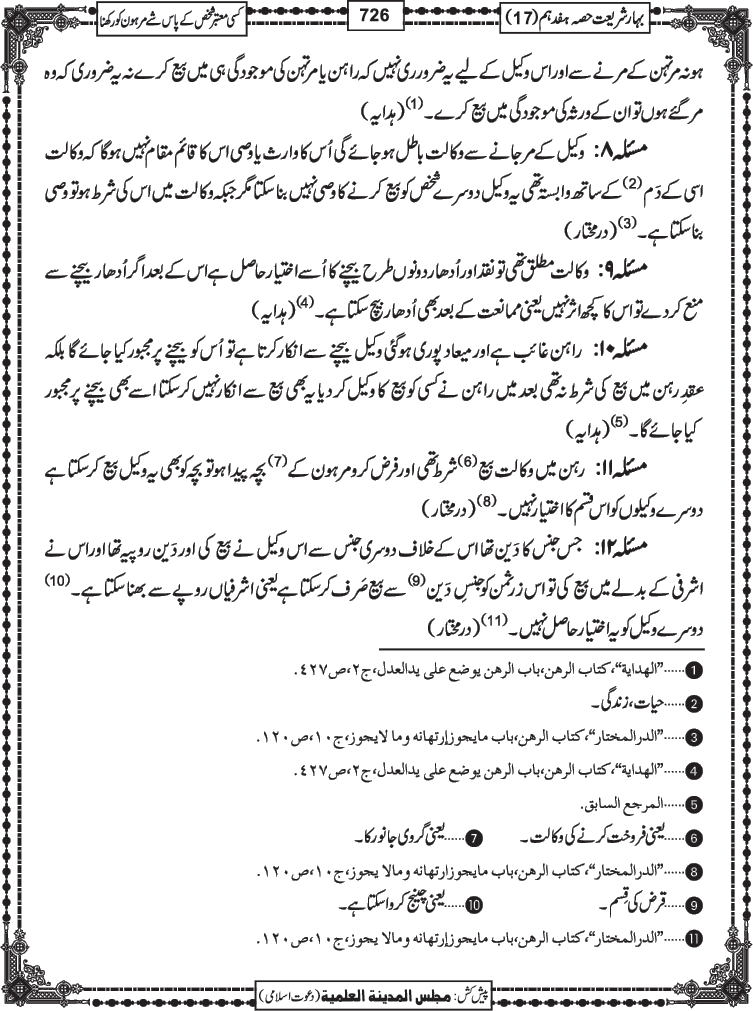 بہارِ شریعت حصہ ہفدہم (17)
726
کسی معتبر شخص کے پاس شے مرہون کو رکھنا
ہو نہ مرتہن کے مرنے سے اور اس وکیل کے لیے یہ ضروری نہیں کہ راہن یا مرتہن کی موجودگی ہی میں بیع کرے نہ یہ ضروری کہ وہ
مر گئے ہوں تو ان کے ورثہ کی موجودگی میں بیع کرے۔(1) (ہدایہ)
مسئلہ ۸: وکیل کے مر جانے سے وکالت باطل ہو جائے گی اُس کا وارث یا وصی اس کا قائم مقام نہیں ہوگا کہ وکالت
اسی کے دَم(2) کے ساتھ وابستہ تھی یہ وکیل دوسرے شخص کو بیع کرنے کا وصی نہیں بنا سکتا مگر جبکہ وکالت میں اس کی شرط ہو تو وصی
بنا سکتا ہے۔(3) (درمختار)
مسئلہ ۹: وکالت مطلق تھی تو نقد اور اُدھار دونوں طرح بیچنے کا اُسے اختیار حاصل ہے اس کے بعد اگر اُدھار بیچنے سے
منع کر دے تو اس کا کچھ اثر نہیں یعنی ممانعت کے بعد بھی اُدھار بیچ سکتا ہے۔(4) (ہدایہ)
مسئلہ ۱۰: راہن غائب ہے اور میعاد پوری ہوگئی وکیل بیچنے سے انکار کرتا ہے تو اُس کو بیچنے پر مجبور کیا جائے گا بلکہ
عقدِ رہن میں بیع کی شرط نہ تھی بعد میں راہن نے کسی کو بیع کا وکیل کر دیا یہ بھی بیع سے انکار نہیں کر سکتا اسے بھی بیچنے پر مجبور
کیا جائے گا۔(5) (ہدایہ)
مسئلہ ۱۱: رہن میں وکالت بیع(6) شرط تھی اور فرض کرو مرہون کے(7) بچہ پیدا ہو تو بچہ کو بھی یہ وکیل بیع کر سکتا ہے
دوسرے وکیلوں کو اس قسم کا اختیار نہیں۔(8) (درمختار)
مسئلہ ۱۲: جس جنس کا دَین تھا اس کے خلاف دوسری جنس سے اس وکیل نے بیع کی اور دَین روپیہ تھا اور اس نے
اشرفی کے بدلے میں بیع کی تو اس زرِثمن کو جنس دَین(9) سے بیع صَرف کر سکتا ہے یعنی اشرفیاں روپے سے بھنا سکتا ہے۔(10)
دوسرے وکیل کو یہ اختیار حاصل نہیں۔(11) (درمختار)
1......”الهداية“،كتاب الرهن،باب الرهن يوضع على يدالعدل،ج٢،ص٤٢٧.
2......حیات، زندگی۔
3......”الدرالمختار“،كتاب الرهن،باب مايجوزإرتهانه وما لايجوز،ج١٠،ص١٢٠.
4......”الهداية“،كتاب الرهن،باب الرهن يوضع على يدالعدل،ج٢،ص٤٢٧.
5......المرجع السابق.
6......یعنی فروخت کرنے کی وکالت۔ 7......یعنی گروی جانور کا۔
8......”الدرالمختار“،كتاب الرهن،باب مايجوزارتهانه ومالا يجوز،ج١٠،ص١٢٠.
9......قرض کی قِسم۔ 10......یعنی چینج کروا سکتا ہے۔
11......”الدرالمختار“،كتاب الرهن،باب مايجوزارتهانه ومالا يجوز،ج١٠،ص١٢٠.
پیش کش: مجلس المدينة العلمية (دعوت اسلامی)